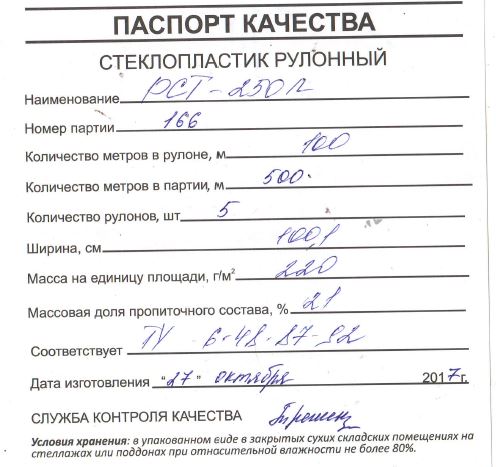 ПАСПОРТ КАЧЕСТВА
СТЕКЛОПЛАСТИК РУЛОННЫЙ
Наименование РСТ-250Л
Номер партии 166
Количество метров в рулоне, м 100
Количество метров в партии, м 500.
Количество рулонов, шт 5
Ширина, см 100,1
Масса на единицу площади, г/м² 220
Массовая доля пропиточного состава, % 21
Соответствует ТУ 6-48-87-92
Дата изготовления "27" октября 2017г.
СЛУЖБА КОНТРОЛЯ КАЧЕСТВА
Условия хранения: в упакованном виде в закрытых сухих складских помещениях на
стеллажах или поддонах при отнасительной влажности не более 80%.